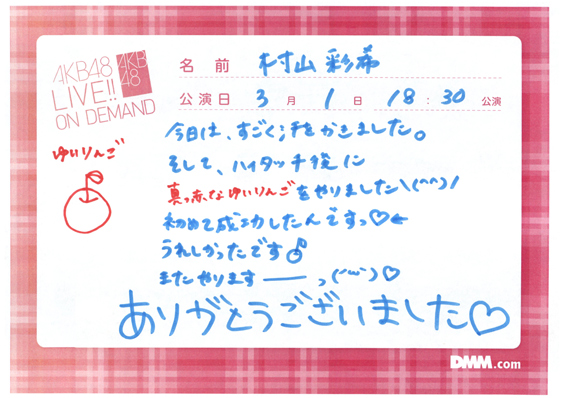 AKB48
LIVE!!
ON DEMAND
AKB
48
名前 村山彩希
公演日 3月1日 18:30公演
ゆいりんご
今日は、すごく汗をかきました。
そして、ハイタッチ後に
真っ赤なゆいりんごをやりました\(^^)/
初めて成功したんですっ♡←
うれしかったです♪
またやりますーーっ(^ω^)♡
ありがとうございました♡
DMM.com